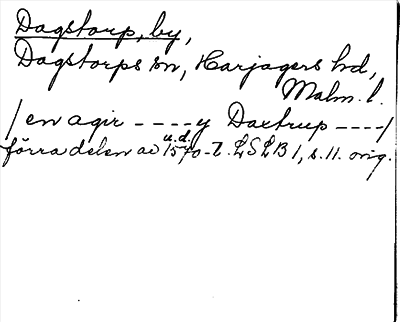 Dagstorp, by,
Dagstorps sn, Harjagers hd,
Malm. l.
/ en agir ----y Daxtrup ----/
u.d.
förra delen av 1570-t. LSLB 1, s. 11. orig.